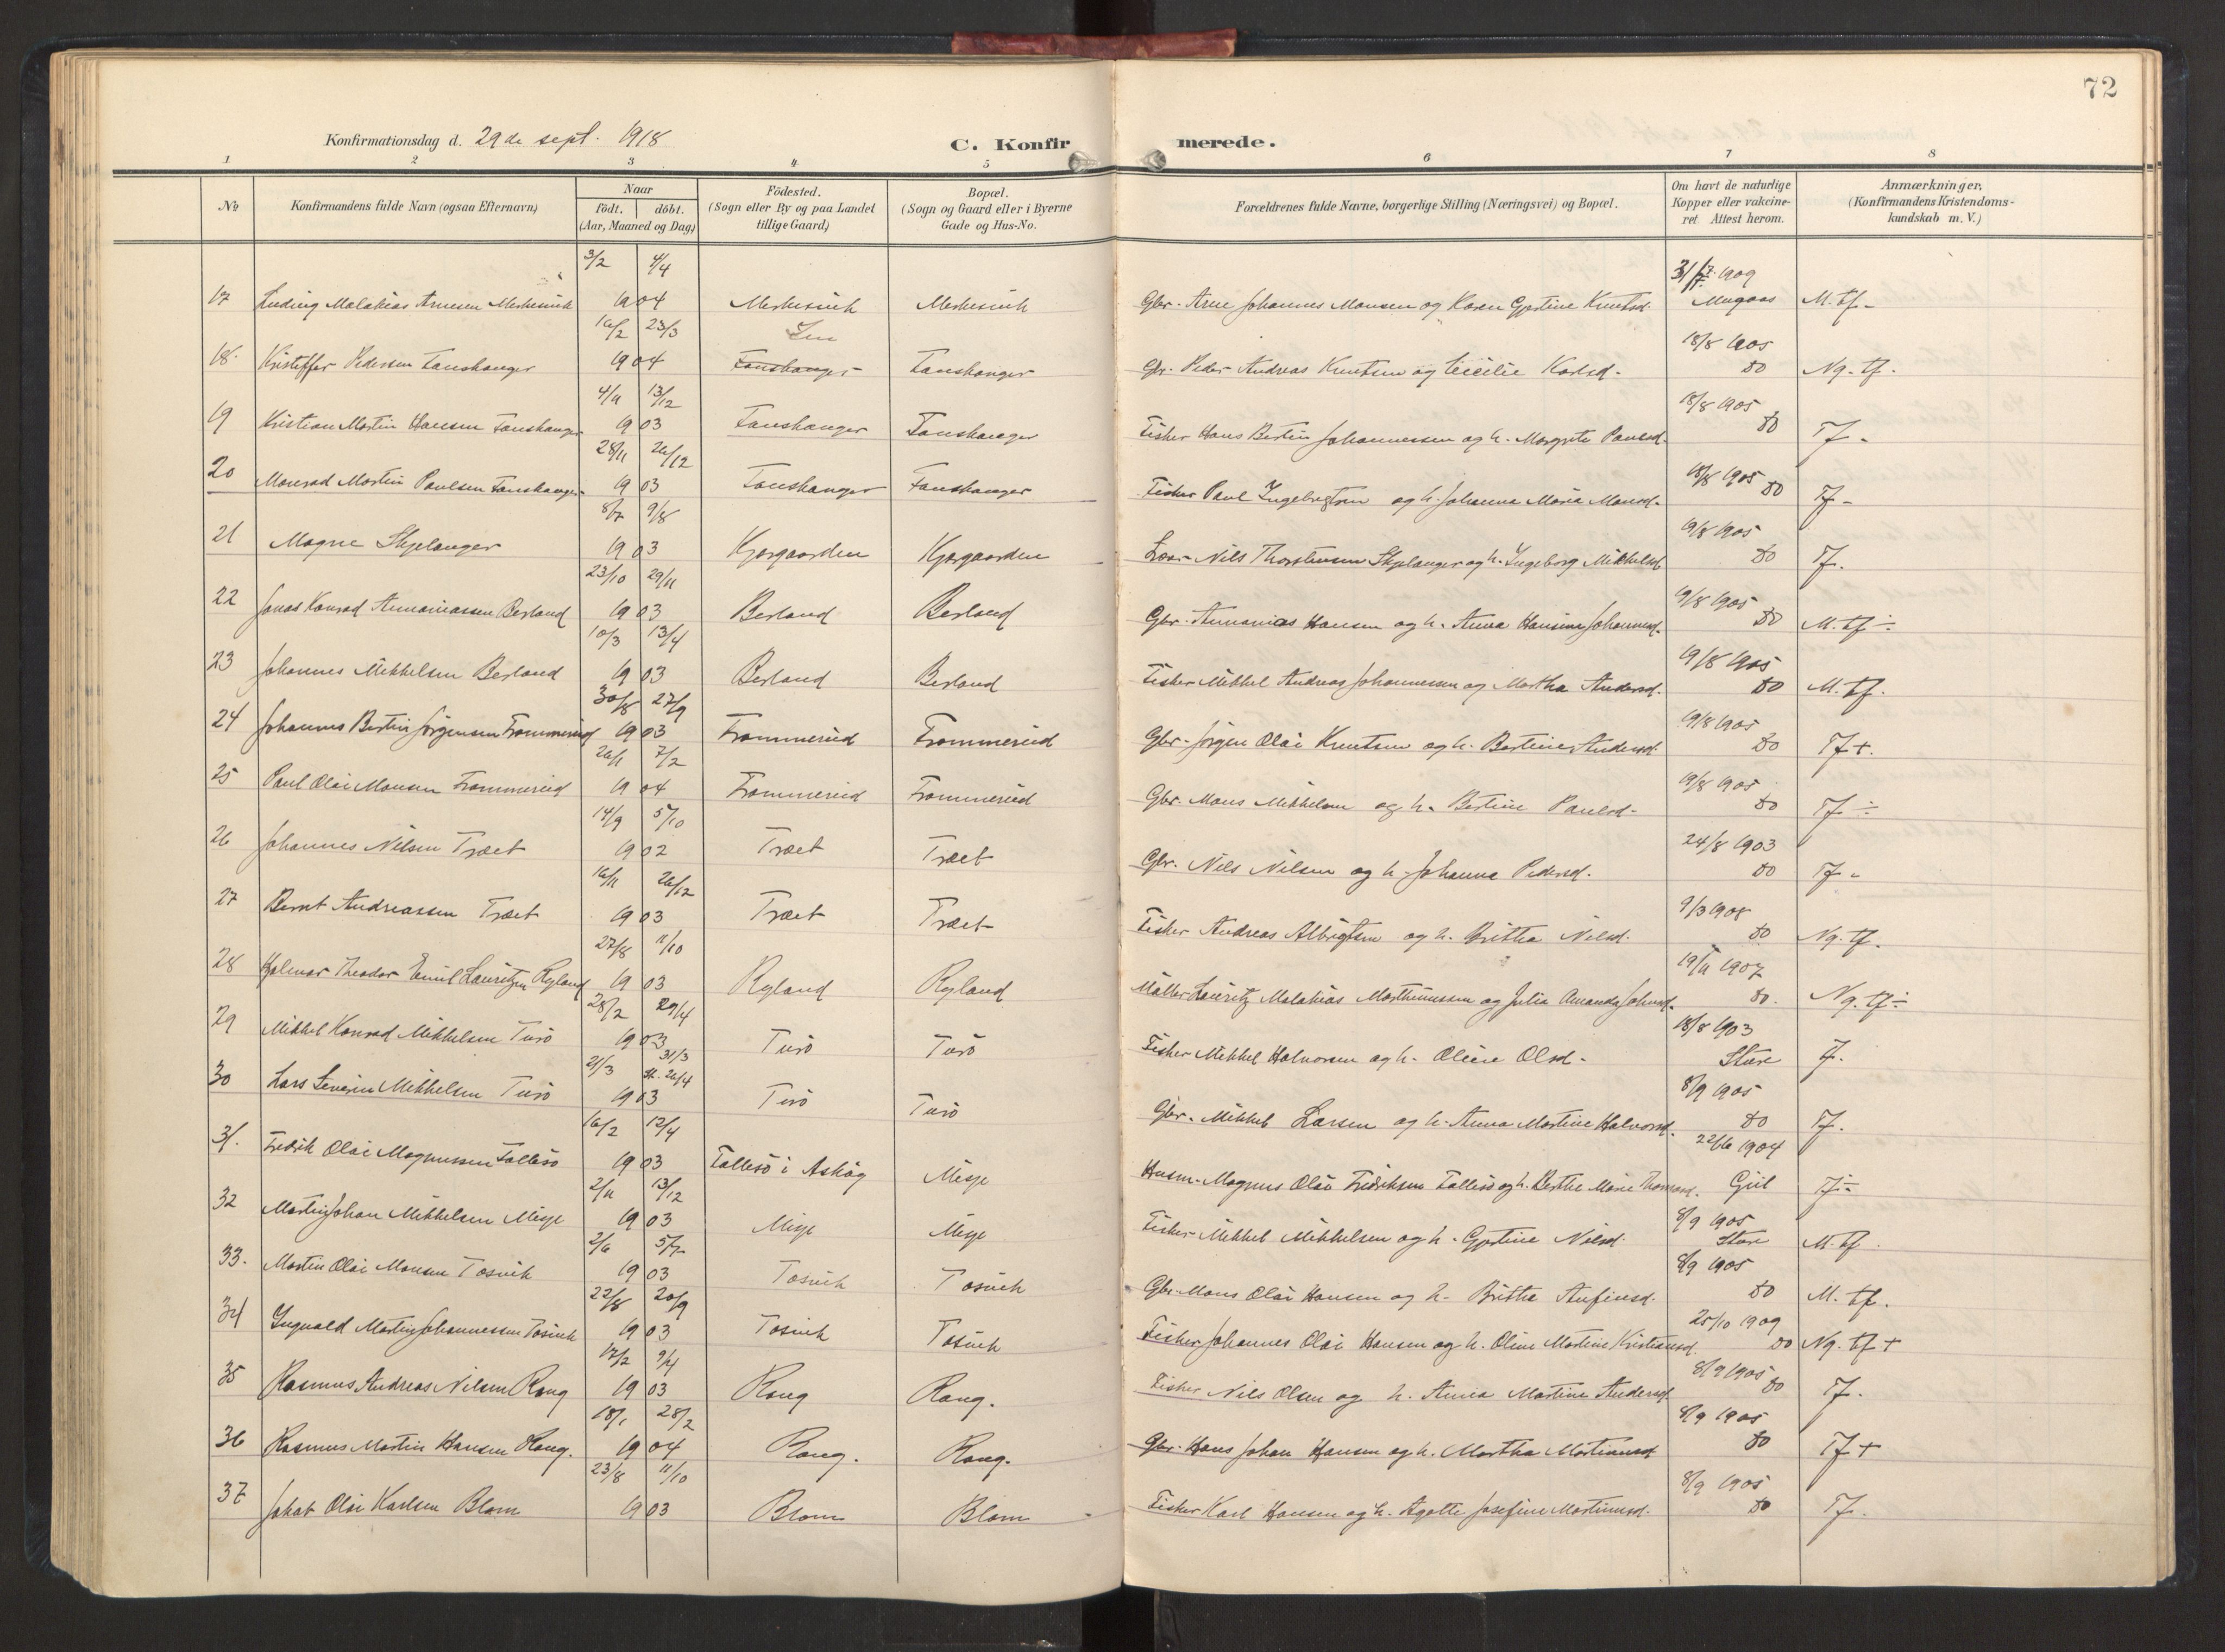 72
Konfirmationsdag d. 29de sept. 1918
C. Konfirmerede.
1 2 3 4 5 6 7 8
No
Konfirmandens fulde Navn (ogsaa Efternavn)
Naar
födt. | döbt.
(Aar, Maaned og Dag)
Födested.
(Sogn eller By og paa Landet
tillige Gaard)
Bopæl.
(Sogn og Gaard eller i Byerne
Gade og Hus-No.
Forældrenes fulde Navne, borgerlige Stilling (Næringsvei) og Bopæl.
Om havt de naturlige
Kopper eller vakcine-
ret Attest herom.
Anmærkninger.
(Konfirmandens Kristendoms-
kundskab m. V.)
3/2 4/4 1909
17 Ludvig Malakias Arnesen 1904 Gbr. Arne Johannes Monsen og Karen Gjertine Knutsd. M. tf-
16/2 23/3 18/8 1905
18. Kristoffer Pedersen Fanshanger 1904 Fanshanger Fanshanger Gbr. Peder Andreas Knutsen og Karlsd. do Ng. tf.
4/11 13/12 18/8 1905
19 Kristian Martin Hansen Fanshanger 1903 Fanshanger Fanshanger Fisker Hans Bertin Johannessen og h. Margrete Paulsd. do Tf-
28/11 26/12 18/8 1905
20 Monrad Martin Paulsen Fanshanger 1903 Fanshanger Fanshanger Fisker Paul Ingebrigtsen og h. Johanna Maria Monsd. do Tf-
8/7 9/8 19/8 1905
21 Magne Skjelanger 1903 Kjærgaarden Kjærgaarden Nils Thorstensen Skjelanger og h. Ingeborg Mikkelsd. do Tf.
23/10 29/11 19/8 1905
22 Jonas Konrad Annaniassen Berland 1903 Berland Berland Gbr. Annanias Hansen og h. Anna Hansine Johannesd. do M. tf ÷
10/3 13/4 19/8 1905
23 Johannes Mikkelsen Berland 1903 Berland Berland Fisker Mikkel Andreas Johannessen og Martha Andersd. do M. tf.
30/8 27/9 19/8 1905
24 Johannes Bertin Jörgensen Frommereid 1903 Frommereid Frommereid Gbr. Jörgen Olai Knutsen og h. Bertine Andersd. do Tf+.
26/1 7/2 19/8 1905
25 Paul Olai Monsen Frommereid 1904 Frommereid Frommereid Gbr. Mons Mikkelsen og h. Bertine Paulsd. do Tf ÷
14/9 5/10 24/8 1903
26 Johannes Nilsen Træet 1902 Træet Træet Gbr. Nils Nilsen og h. Johanna Pedersd. do Tf-
16/11 26/12 9/3 1908
27 Bernt Andreassen Træet 1903 Træet Træet Fisker Andreas Albrigtsen og h. Britha Nilsd. do Ng. tf.
27/8 11/10 19/11 1907
28 Halmar Theodor Emil Lauritzen Ryland 1903 Ryland Ryland Möller Lauritz Malakias Marthinussen og Julia Amanda Johnsd. do. Ng. tf ÷
28/2 29/4 18/8 1903
29 Mikkel Konrad Mikkelsen Turö 1903 Turö Turö Fisker Mikkel Halvorsen og h. Oline Olsd. Sture Tf.
21/3 31/3 St. 26/4 8/9 1905
30 Lars Severin Mikkelsen Turö 1903 Turö Turö Gbr. Mikkel Larsen og h. Anna Martine Halvorsd. do Tf.
16/2 12/4 22/6 1904
31. Fredrik Olai Magnussen Follesö 1903 Follesö i Asköy Misje Husm. Magnus Olai Fredriksen Follesö og h. Berthe Marie Thomasd. Tf ÷
2/11 13/12 8/9 1905
32 Martin Johan Mikkelsen Misje 1903 Misje Misje Fisker Mikkel Mikkelsen og h. Gjertine Nilsd. Sture M. tf.
2/6 5/7 8/9 1905
33. Martin Olai Monsen Tosvik 1903 Tosvik Tosvik Gbr. Mons Olai Hansen og h. Britha Anfinsd. do M. tf.
22/8 20/9 25/10 1909
34 Ingvald Martin Johannessen Tosvik 1903 Tosvik Tosvik Fisker Johannes Olai Hansen og h. Oline Martine Kristiansd. do Ng. tf +
17/2 9/4 8/9 1905
35 Rasmus Andreas Nilsen Rong 1903 Rong Rong. Fisker Nils Olsen og h. Anna Martine Andersd. do Tf.
18/1 28/2 8/9 1905
36 Rasmus Martin Hansen Rong. 1904 Rong. Rong. Gbr. Hans Johan Hansen og h. Martha Martinusd. do Tf +
23/8 11/10 8/9 1905
37 Jakob Olai Karlsen Blom 1903 Blom Blom Fisker Karl Hansen og h. Agatte Josefine Martinusd. do Tf.